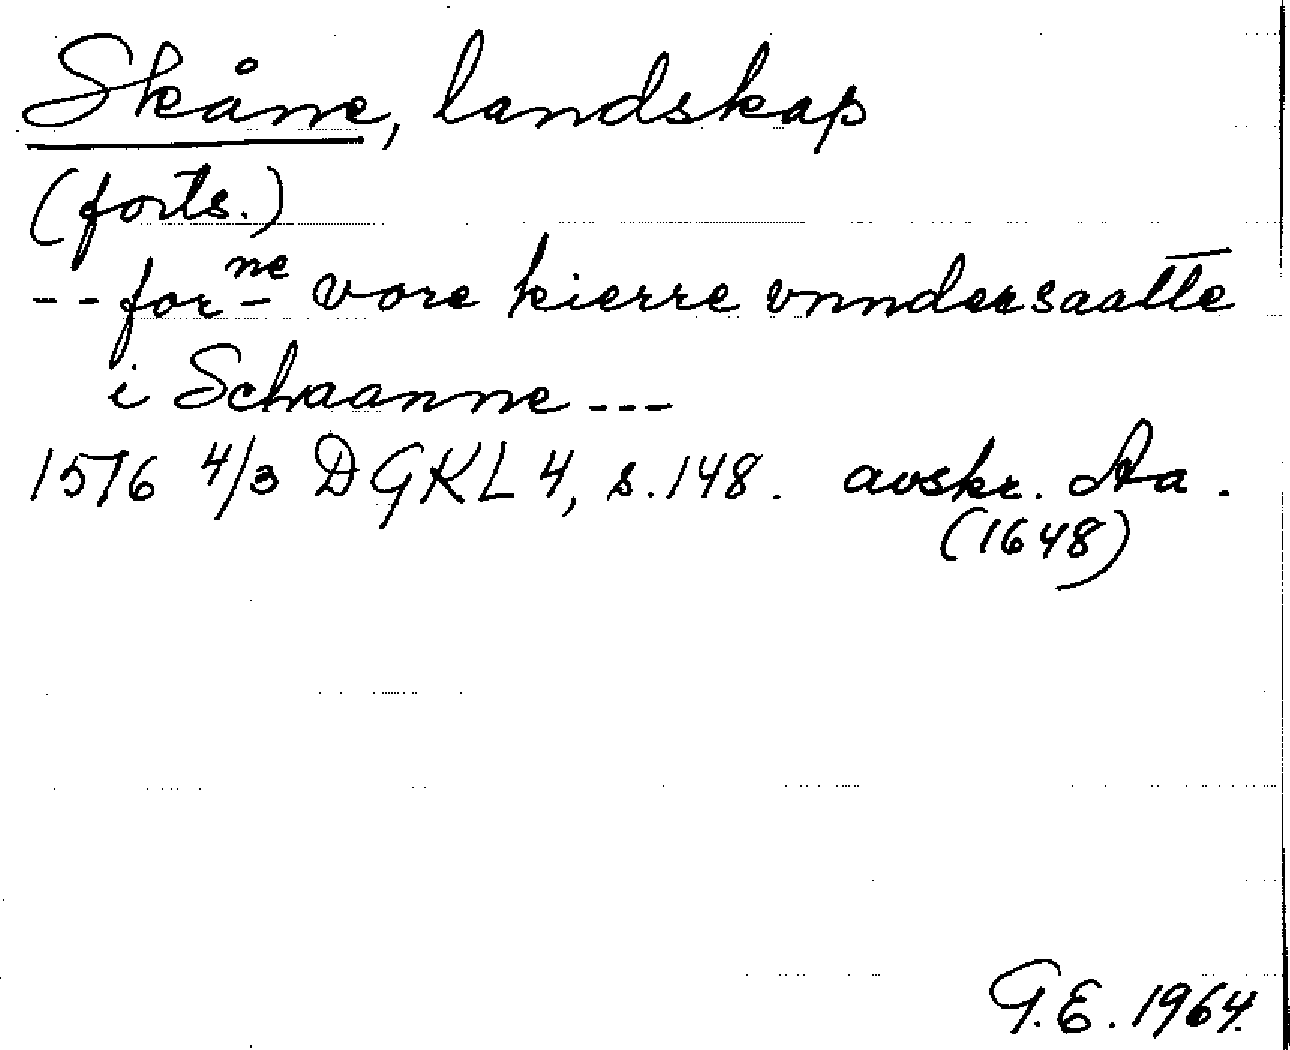 Skåne, landskap
(forts.)
-- forne vore kierre vnndersaatte
i Schaanne ---
1576 4/3 DGKL 4, s. 148. avskr. Aa.
(1648)
G.E. 1964.